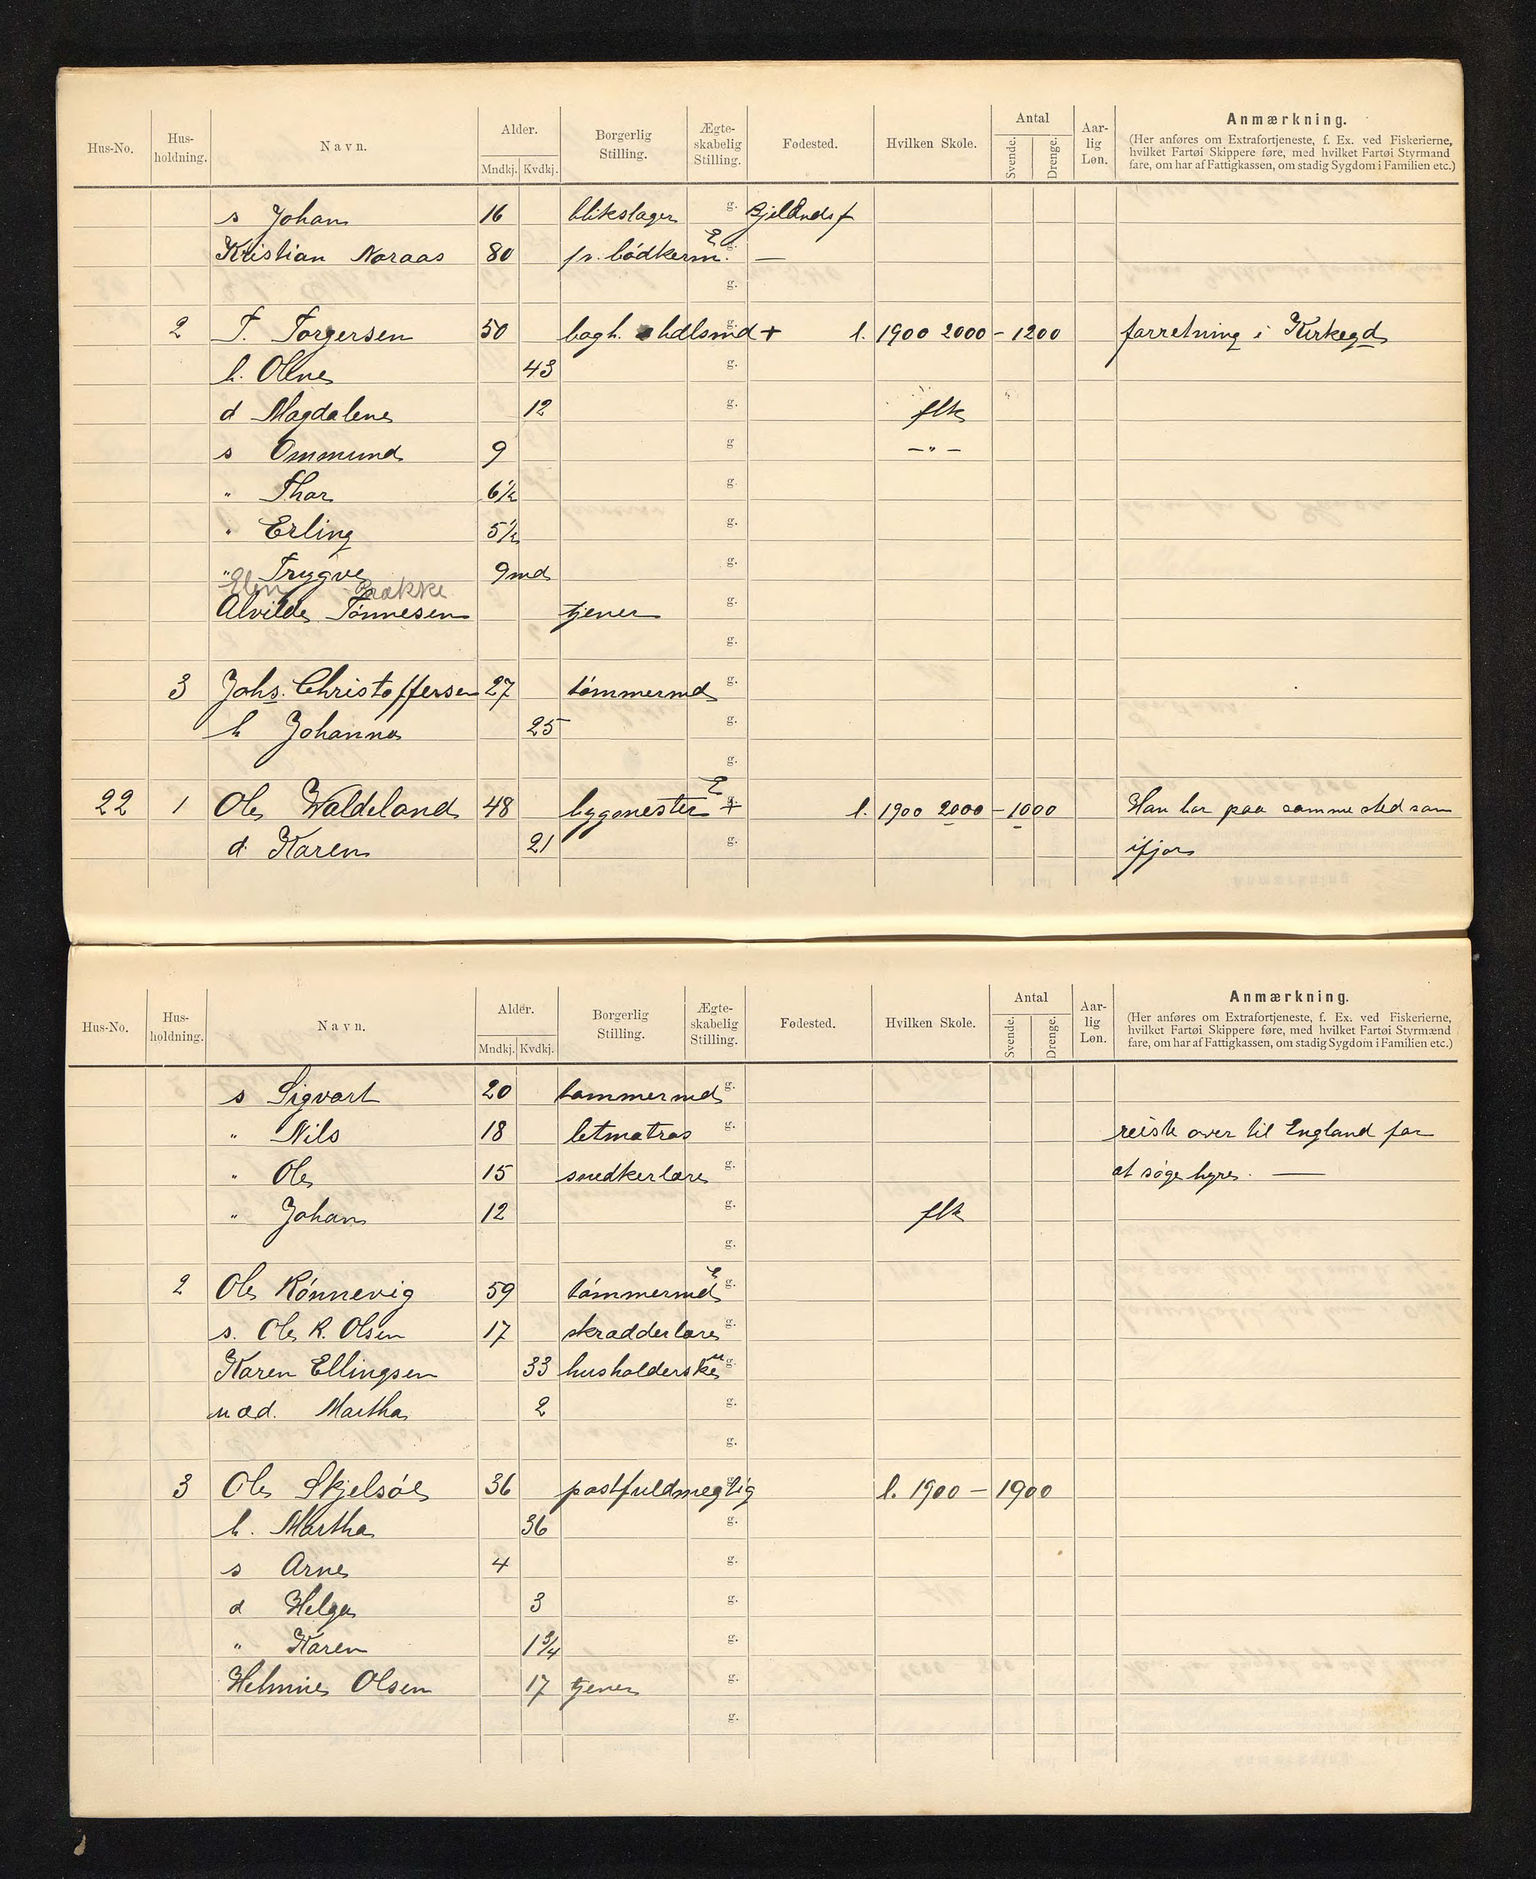 Hus-No. Hus-holdning. Navn. Alder. Mndkj. Kvdkj. Borgerlig Stilling. Ægte-skabelig Stilling. Fødested. Hvilken Skole. Antal Svende. Drenge. Aar-lig Løn. Anmærkning.
(Her anføres om Extrafortjeneste, f. Ex. ved Fiskerierne,
hvilket Fartøi Skippere føre, med hvilket Fartøi Styrmænd
fare, om har af Fattigkassen, om stadig Sygdom i Familien etc.)
s Johan 16 blikslager g.
Kristian Noraas 80 fr. bødkerm. E g. —
g.
2 T. Torgersen 50 bagh. hdlsmd g. + l. 1900 2000 - 1200 forretning i Kirkegd
h. Oline 43 g.
d Magdalene 12 g. flk
s Ommund 9 g —"—
" Thor 6½ g.
" Erling 5½ g.
" Trygve 9 md g.
Elen Bakke
Alvilde Tønnesen tjener g.
g.
3 Johs. Christoffersen 27 tømmermd g.
h Johanna 25 g.
g.
22 1 Ole Waldeland 48 bygmester E + g. l. 1900 2000 - 1000 Han har paa samme sted som
d. Karen 21 g. ifjor
Hus-No. Hus-holdning. Navn. Alder. Mndkj. Kvdkj. Borgerlig Stilling. Ægte-skabelig Stilling. Fødested. Hvilken Skole. Antal Svende. Drenge. Aar-lig Løn. Anmærkning.
(Her anføres om Extrafortjeneste, f. Ex. ved Fiskerierne,
hvilket Fartøi Skippere føre, med hvilket Fartøi Styrmænd
fare, om har af Fattigkassen, om stadig Sygdom i Familien etc.)
s Sigvart 20 tømmermd g.
" Nils 18 letmatros g. reist over til England for
" Ole 15 snedkerlære g. at søge hyre. —
" Johan 12 g. flk
g.
2 Ole Rønnevig 59 tømmermd E g.
s. Ole R. Olsen 17 skrædderlære g.
Karen Ellingsen 33 husholderske u g.
u æ d. Martha 2 g.
g.
3 Ole Skjelsøe 36 postfuldmegtig g. l. 1900 - 1900
h. Martha 36 g.
s Arne 4 g.
d Helga 3 g.
" Karen 1¾ g.
Helmine Olsen 17 tjener g.
g.